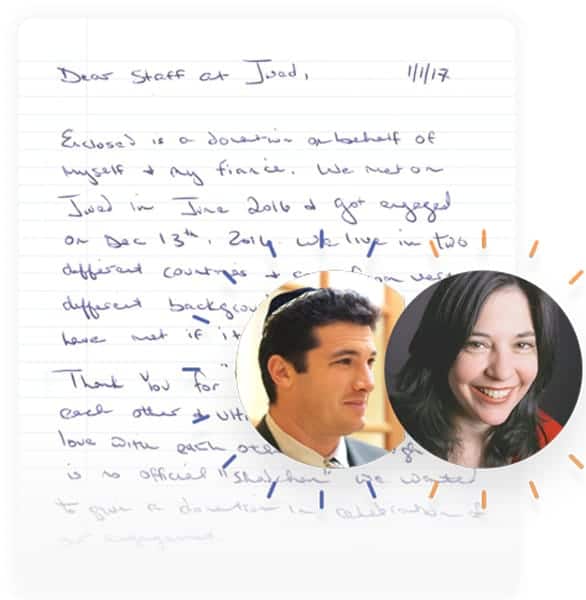 Dear Staff at Jwed, 1/1/17
Enclosed is a donation on behalf of
myself & my fiancé. We met on
Jwed in June 2016 & got engaged
on Dec 13th, 2016. We live in two
different countries & from
different
have met if it
Thank You for
each other &
love with each
is no official "Shadchan" we wanted
to give a donation in celebration of
our engagement.